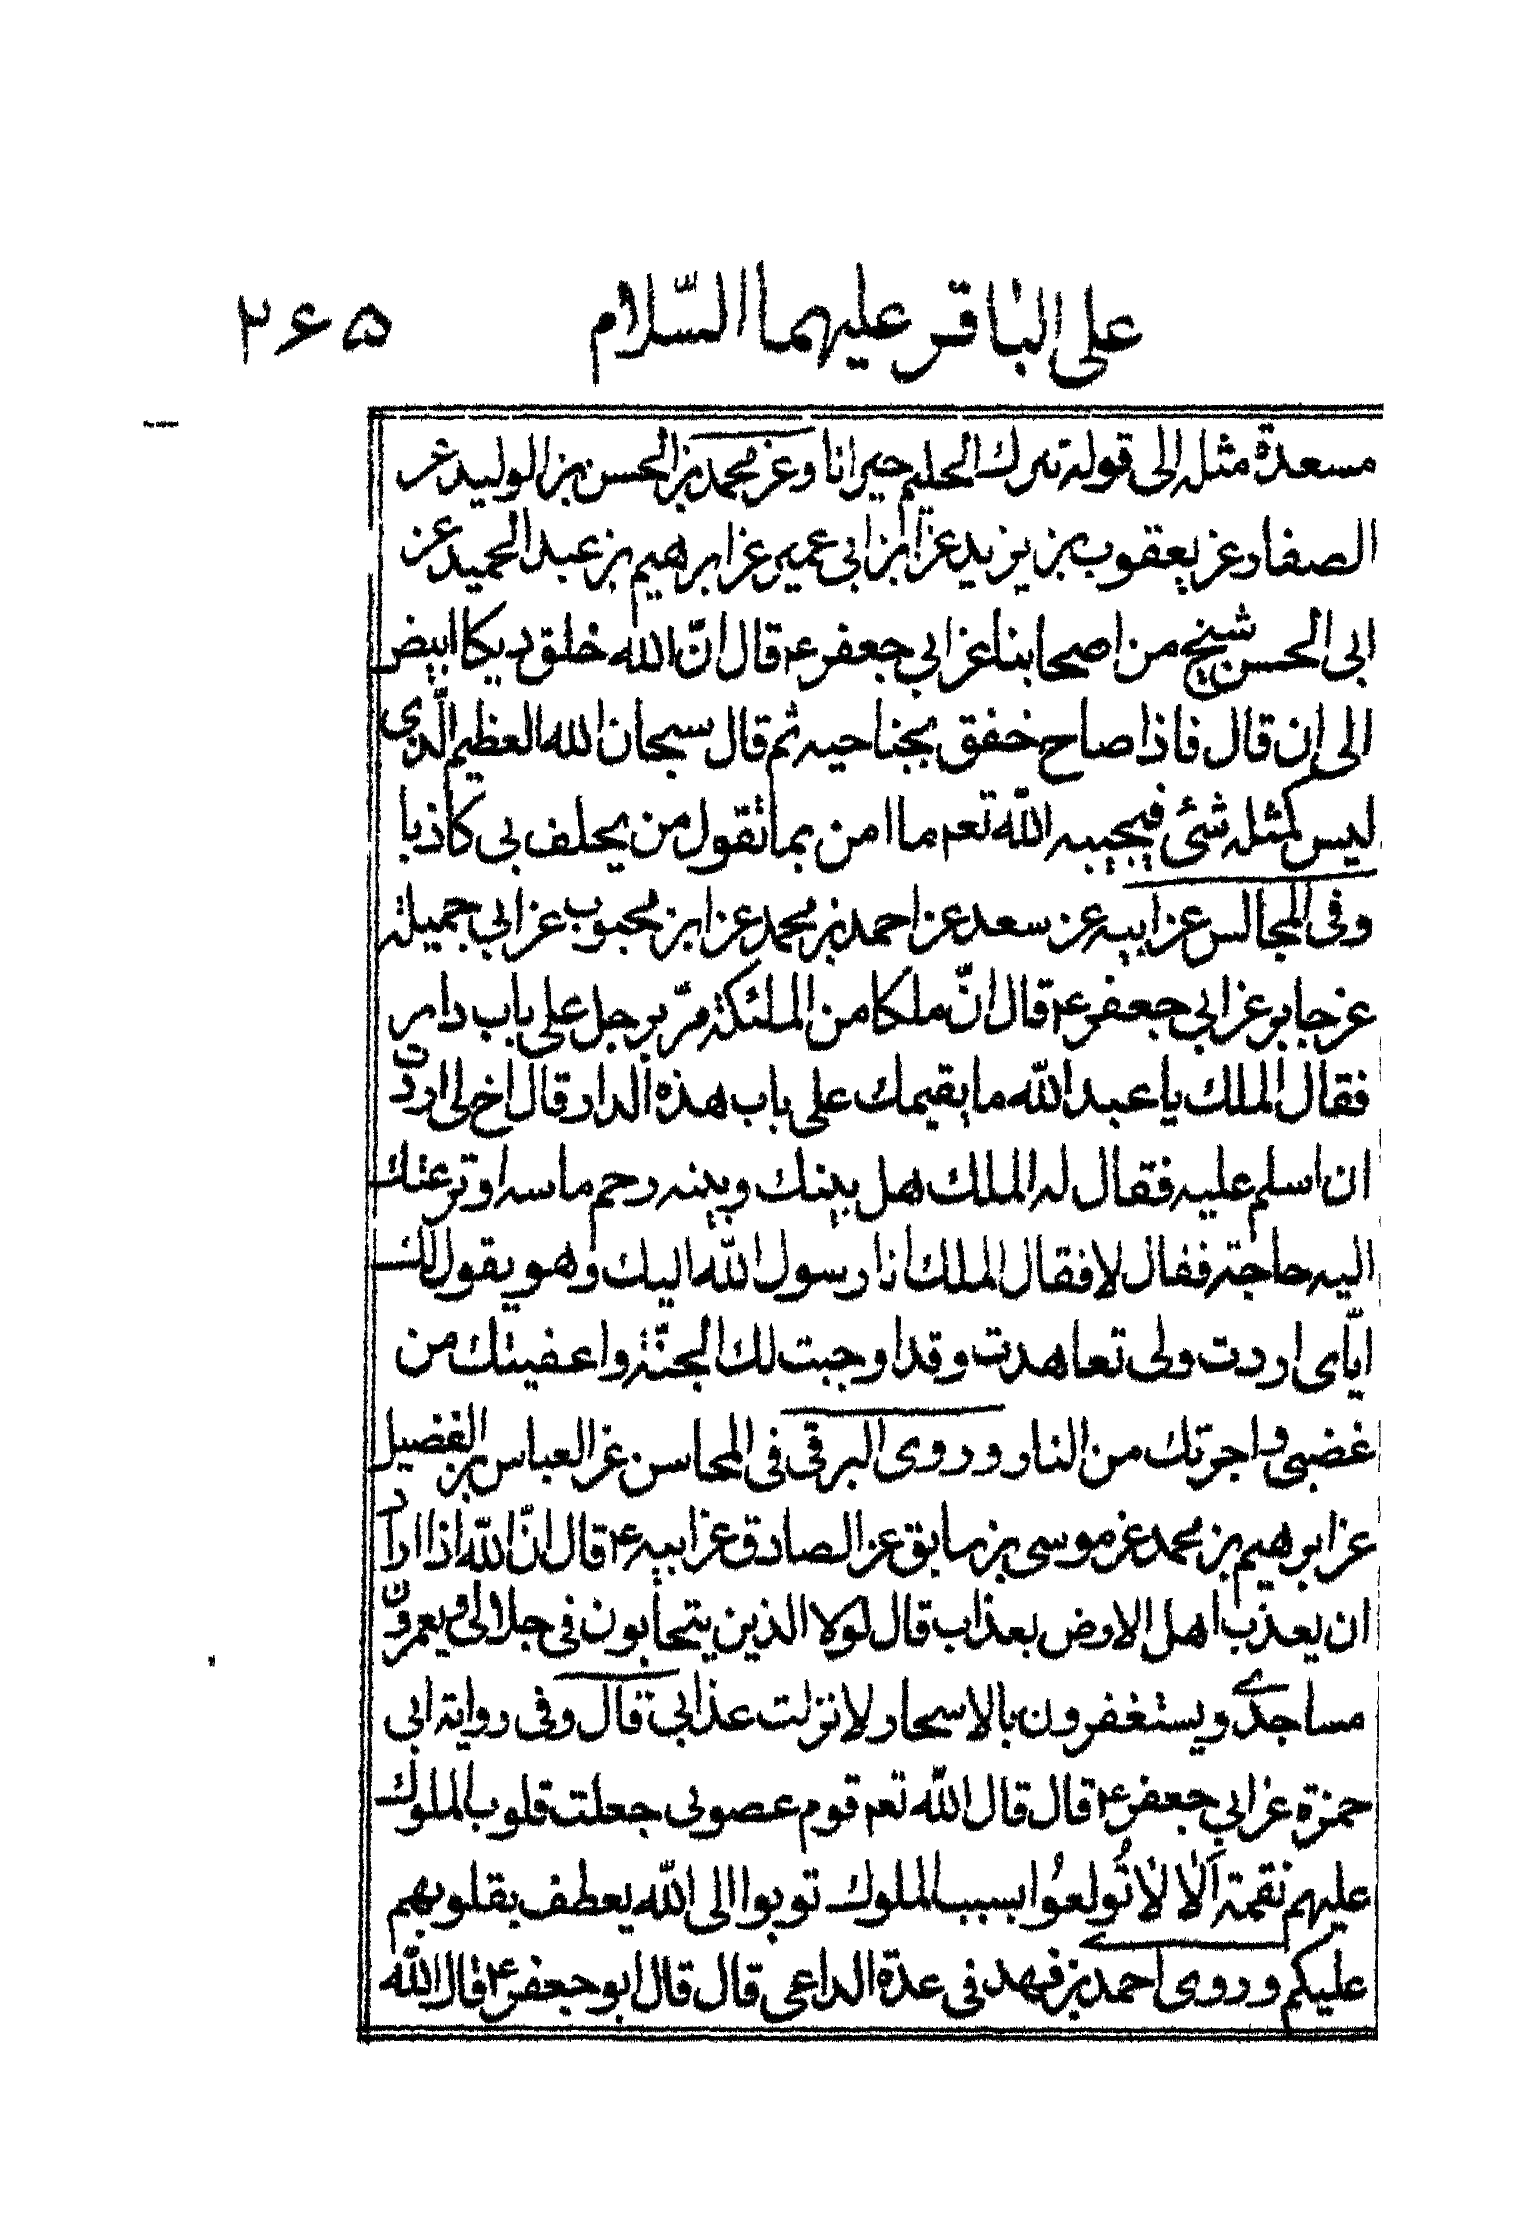 على الباقر عليهما السّلام ٢۶۵
مسعدة مثله الى قوله تترك الحليم حيرانا وعن محمد بن الحسن بن الوليد عن
الصفار عن يعقوب بن يزيد عن ابن ابى عمير عن ابرهيم بن عبد الحميد عن
ابى الحسن شيخ من اصحابنا عن ابى جعفر ع قال انّ الله خلق ديكا ابيض
الى ان قال فاذا صاح خفق بجناحيه ثم قال سبحان الله العظيم الّذى
ليس كمثله شئ فيجيبه الله تعم ما امن بما تقول من يحلف بى كاذبا
وفى المجالس عن ابيه عن سعد عن احمد بن محمد عن ابن محبوب عن ابى جميلة
عن جابر عن ابى جعفر ع قال انّ ملكا من الملئكة مرّ برجل على باب دار
فقال الملك يا عبد الله ما يقيمك على باب هذه الدار قال اخ لى اردت
ان اسلم عليه فقال له الملك هل بينك وبينه رحم ماسه او نزعتك
اليه حاجة فقال لا فقال الملك انا رسول الله اليك وهو يقول لك
ايّاى اردت ولى تعاهدت وقد اوجبت لك الجنّة واعفيتك من
غضبى واجرتك من النار وروى البرقى فى المحاسن عن العباس بن الفضيل
عن ابرهيم بن محمد عن موسى بن سابق عن الصادق عن ابيه ع قال انّ الله اذا اراد
ان يعذب اهل الارض بعذاب قال لولا الذين يتحابون فى جلالى ويعمرون
مساجدى ويستغفرون بالاسحار لانزلت عذابى وفى رواية ابى
حمزة عن ابى جعفر ع قال قال الله تعم قوم عصونى جعلت قلوب الملوك
عليهم نقمة اَلا لا تُولعُوا بسبب الملوك توبوا الى الله يعطف بقلوبهم
عليكم وروى احمد بن فهد فى عدة الداعى قال قال ابو جعفر ع قال الله